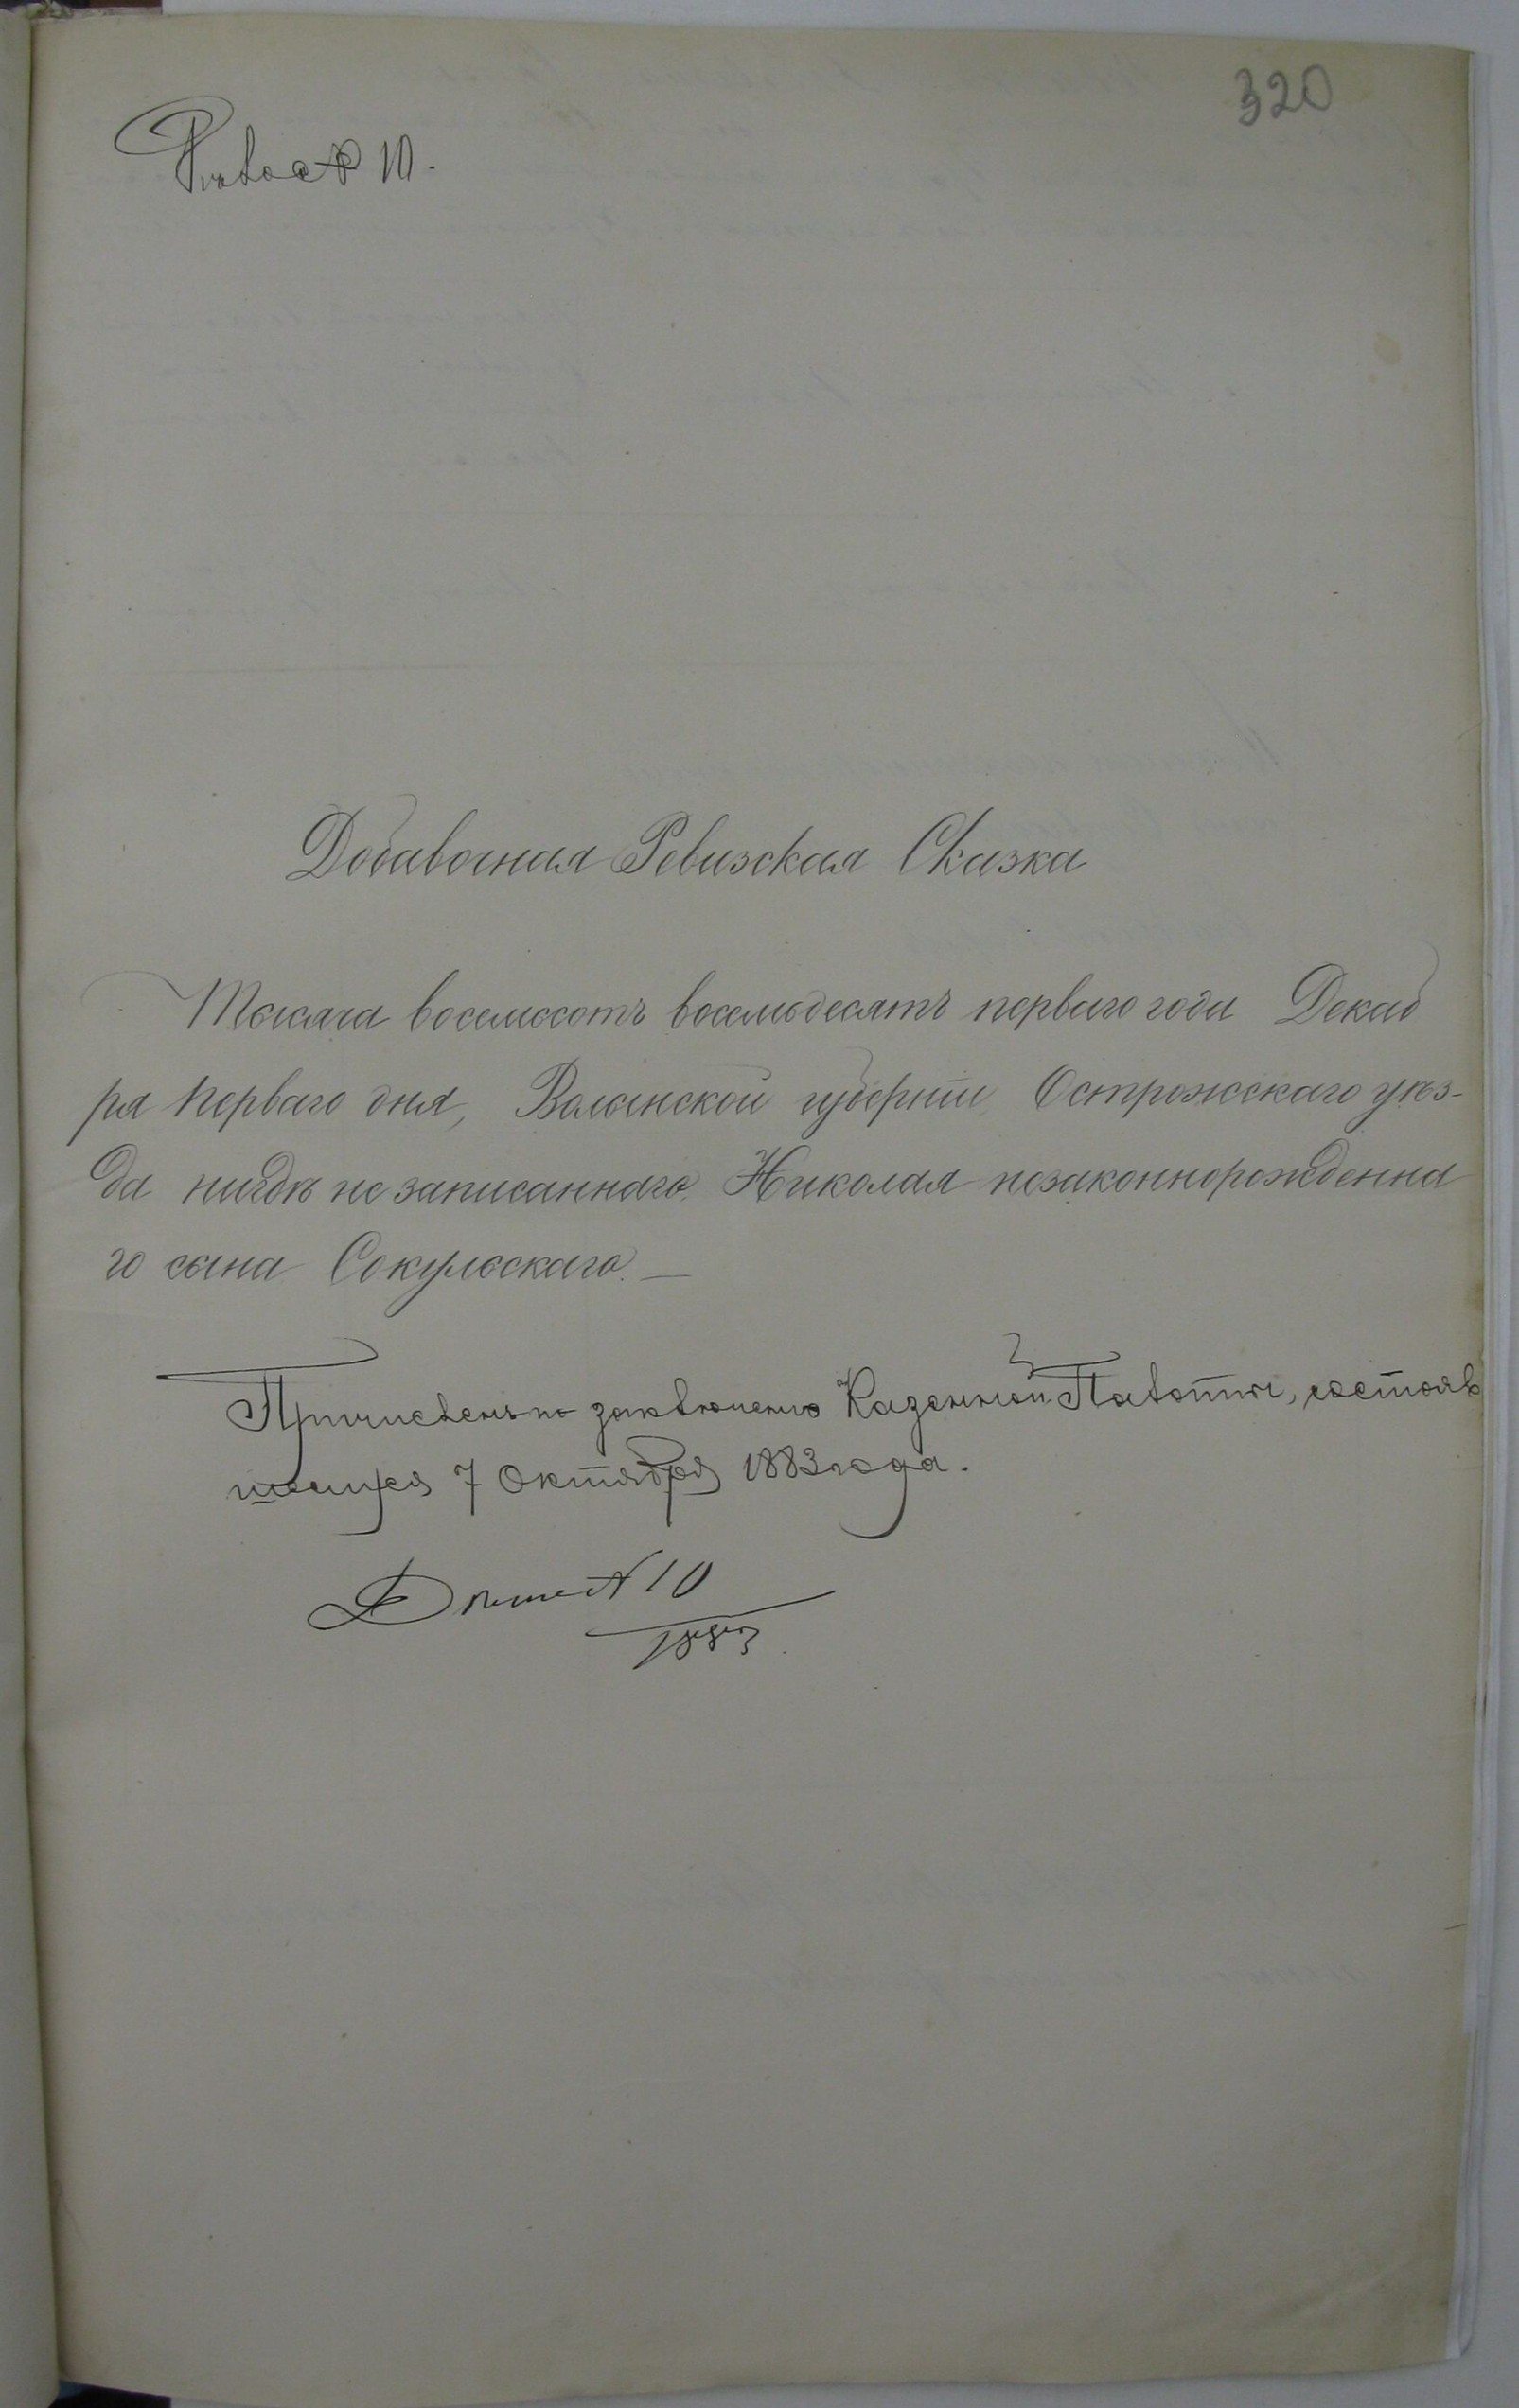 320
№ 10.
Добавочная Ревизская Сказка
Тысяча восемьсотъ восемьдесятъ перваго года Декаб
ря перваго дня, Волынской губерніи Острожскаго уѣз-
да нигдѣ не записаннаго Николая незаконнорожденна
го сына Сокульскаго. —
Причисленъ по заключенію Казенной Палаты, состояв
шемуся 7 Октября 1883 года.
№ 10
1883